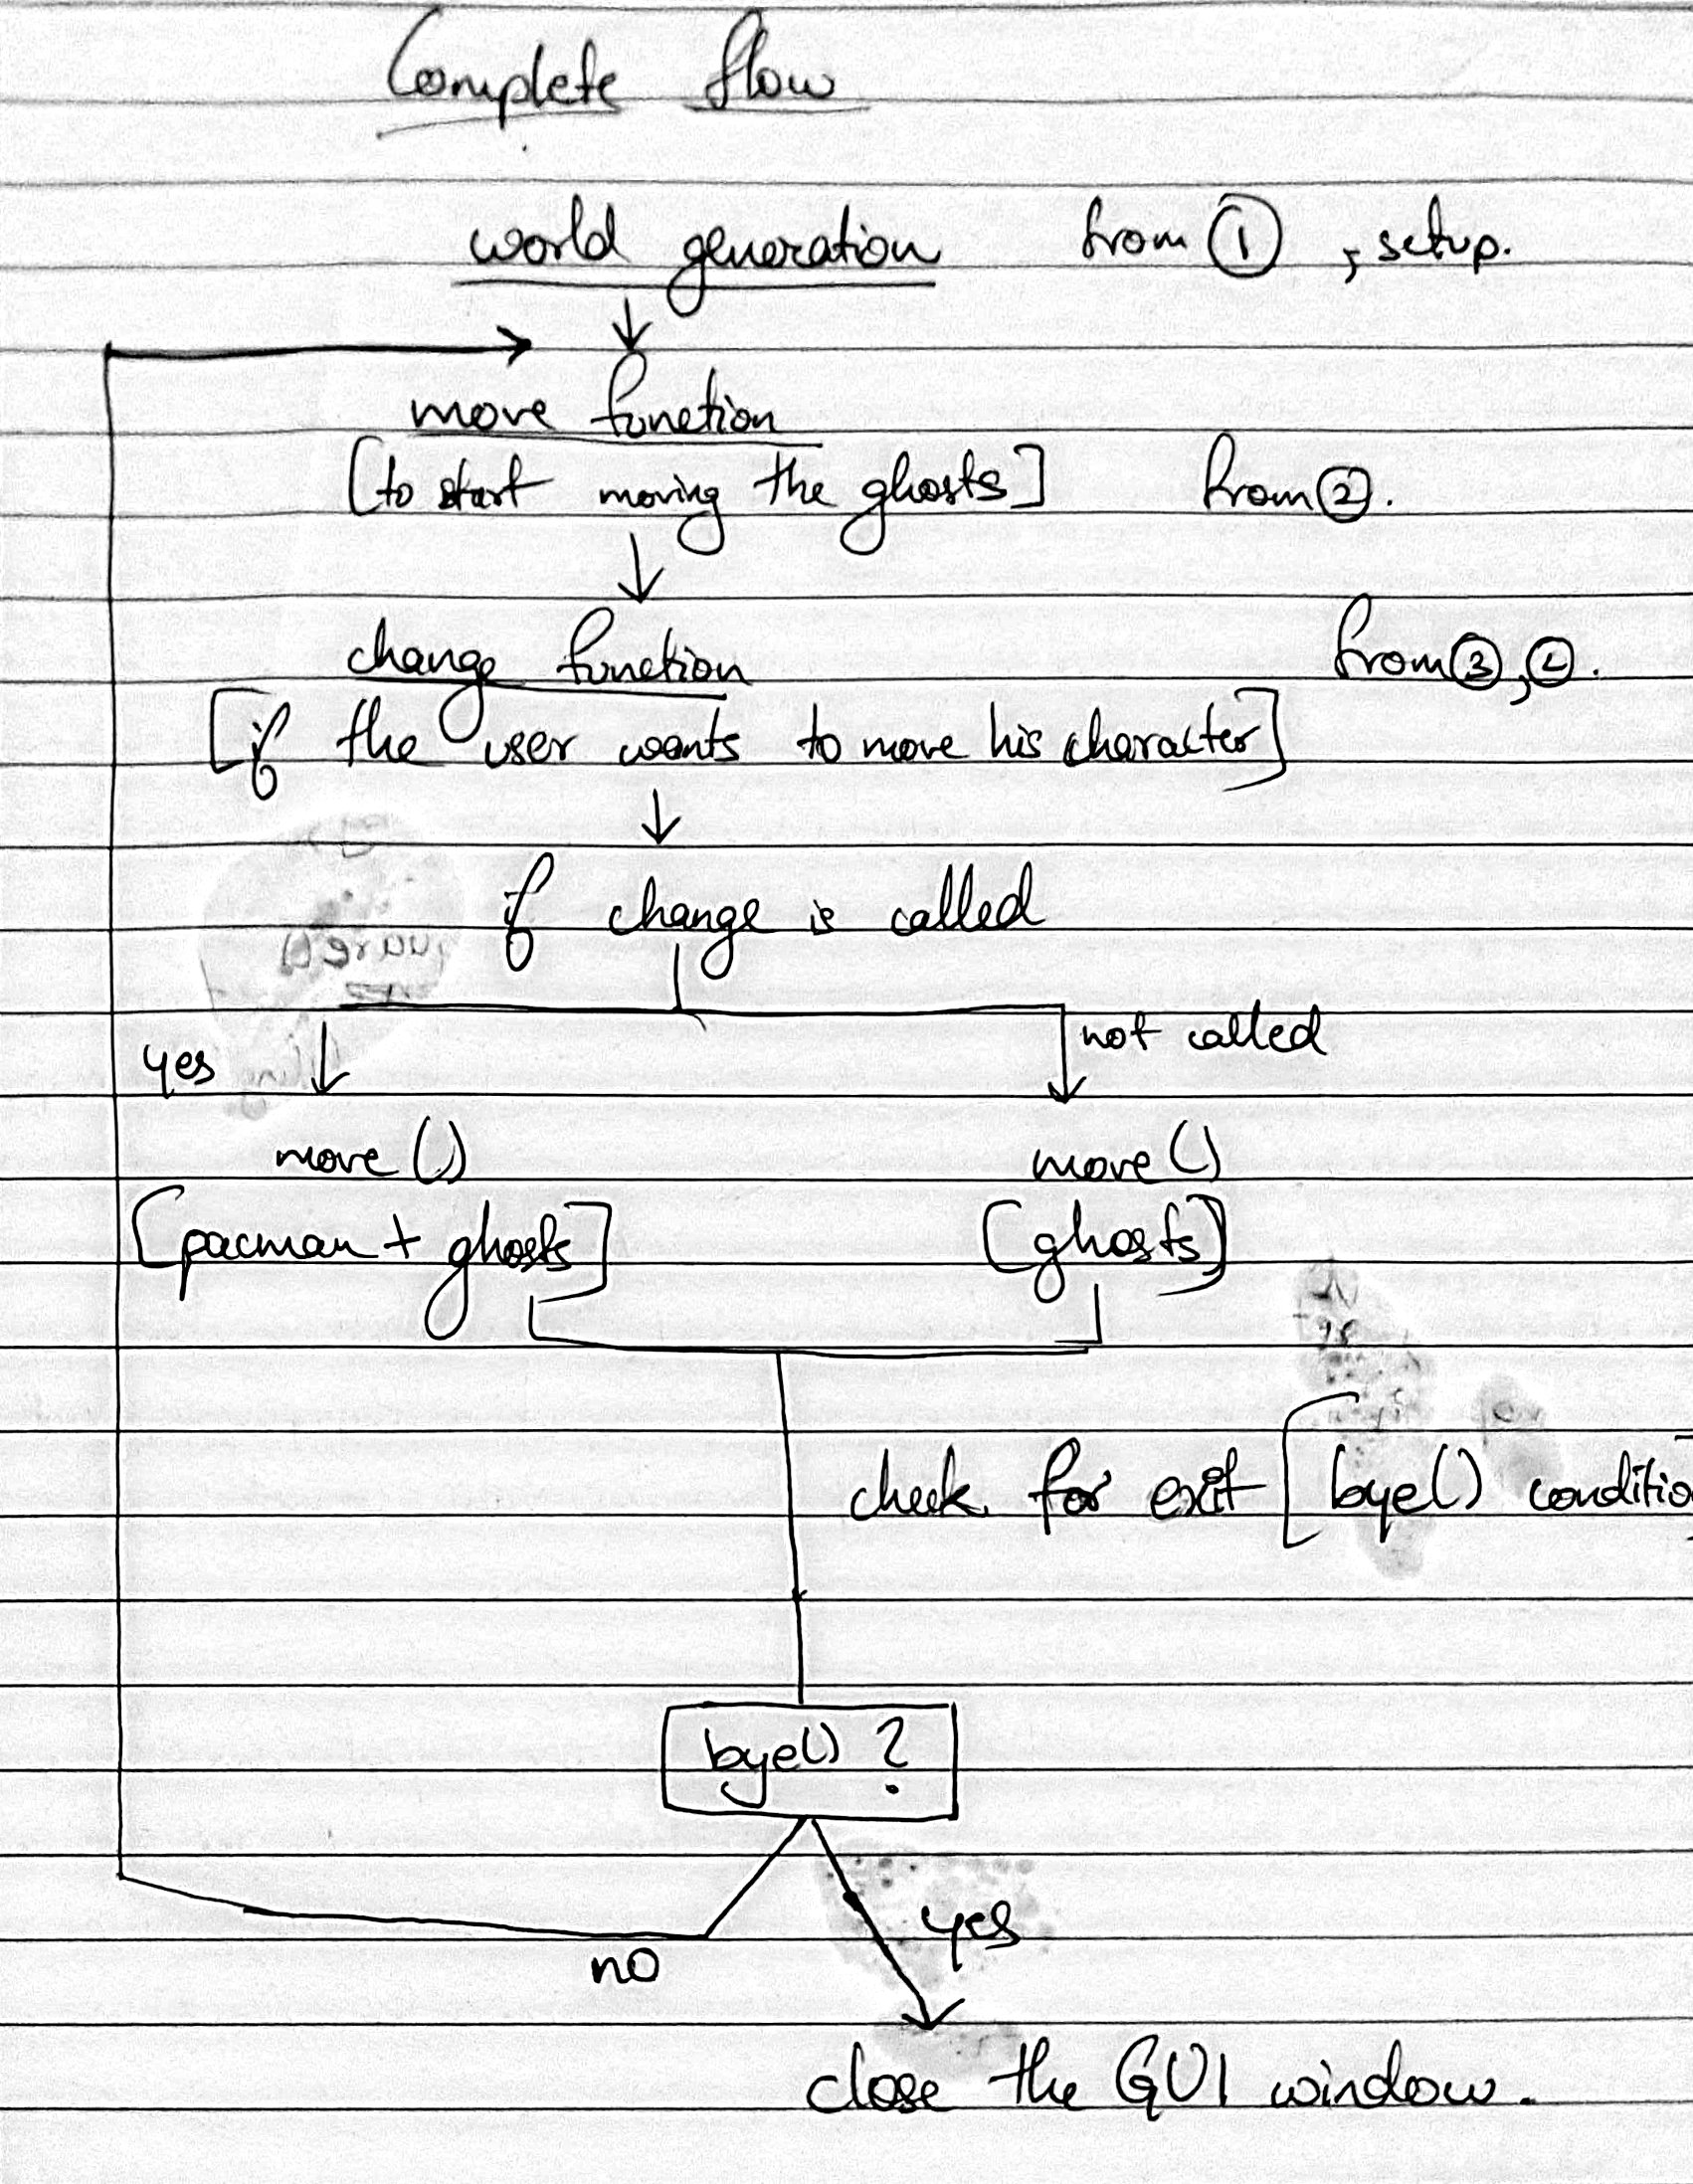 Complete flow
world generation from ① , setup.
move function
[to start moving the ghosts] from ②.
change function from ③, ②.
[if the user wants to move his character]
if change is called
yes not called
move() move()
[pacman + ghosts] [ghosts]
check for exit [bye() conditio
bye() ?
yes
no
close the GUI window.